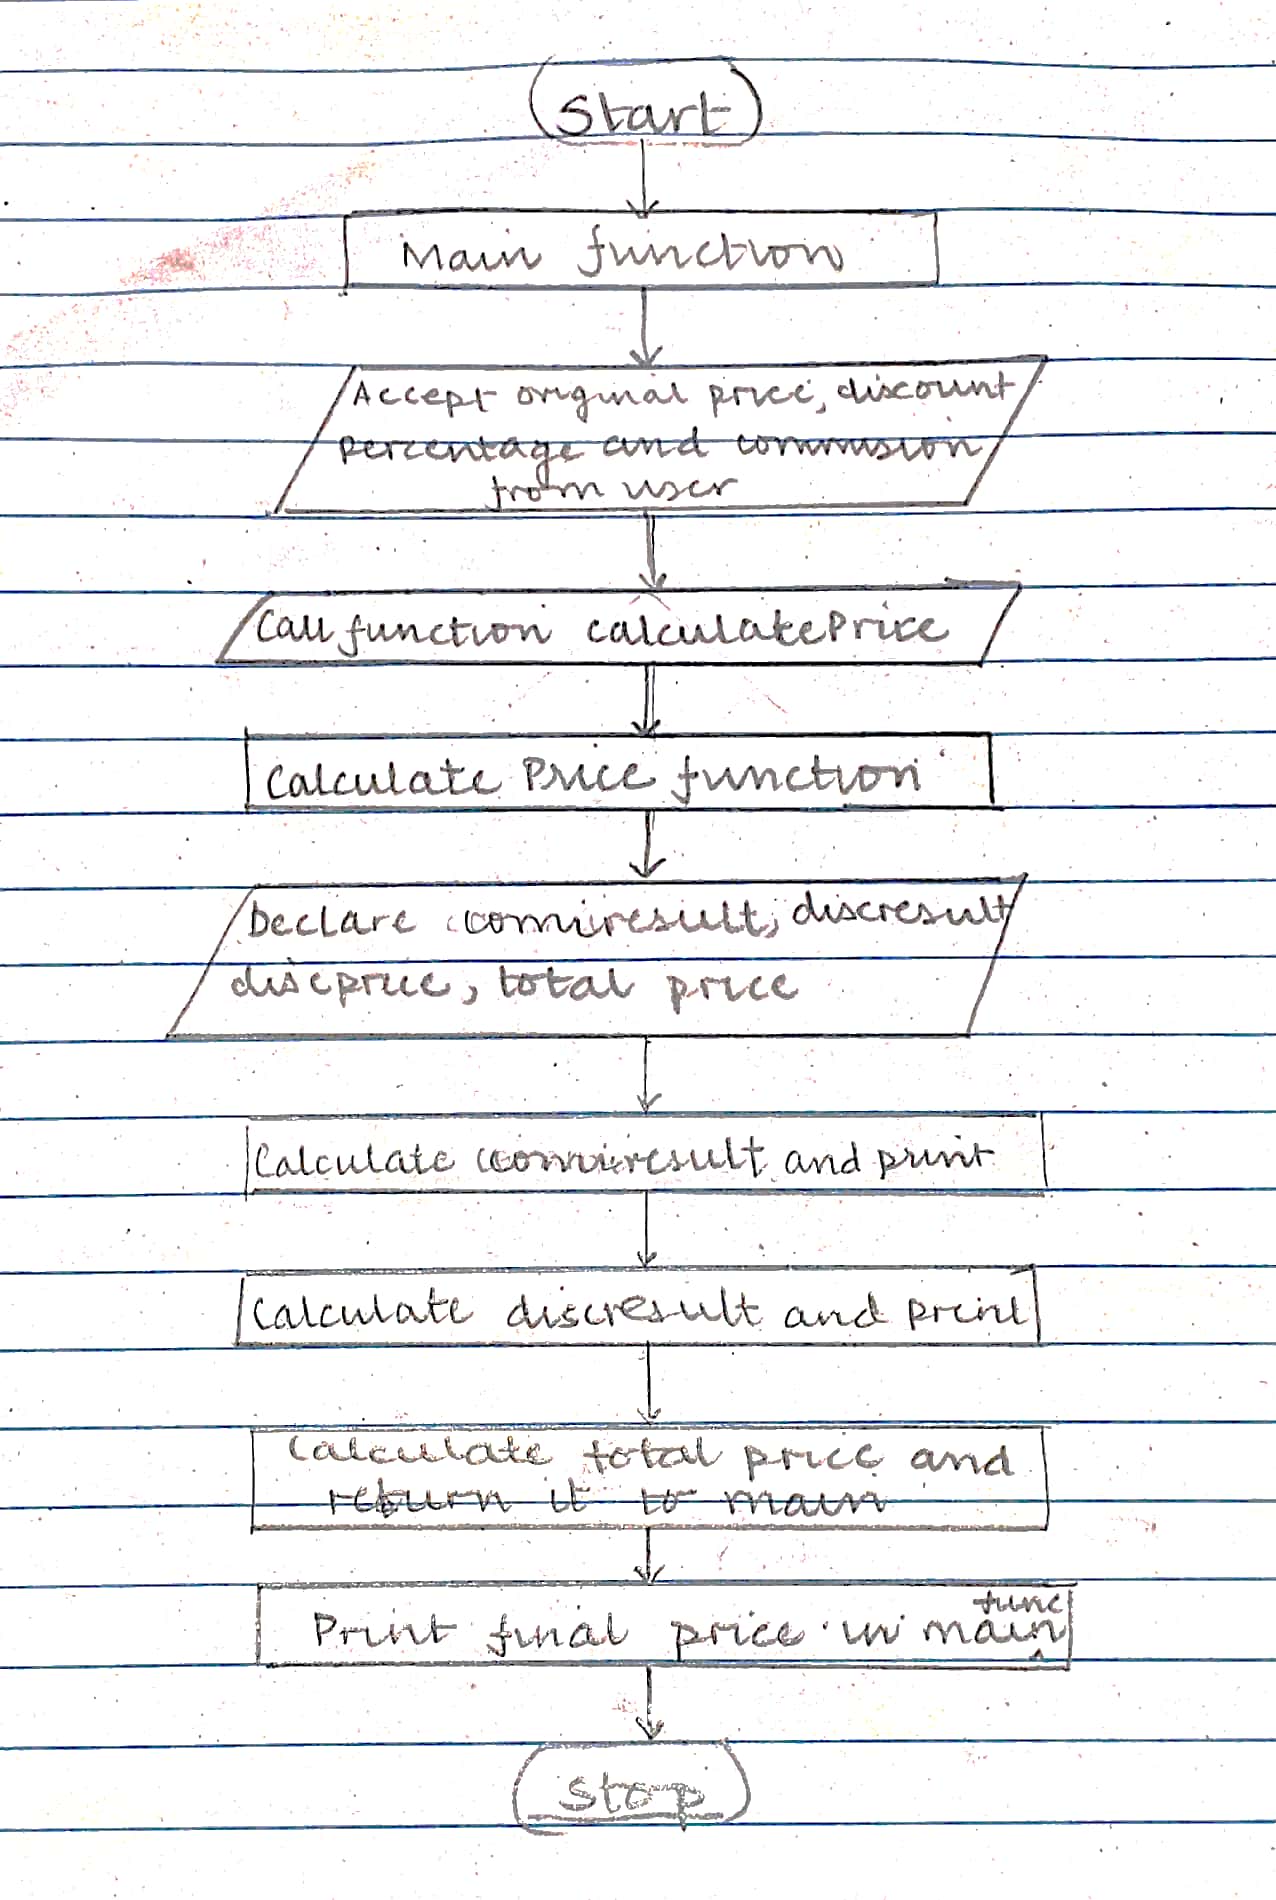 Start
Main function
Accept original price, discount
percentage and commision
from user
Call function calculatePrice
Calculate Price function
Declare comiresult, discresult
discprice, total price
Calculate comiresult and print
Calculate discresult and print
Calculate total price and
return it to main
func
Print final price in main
Stop